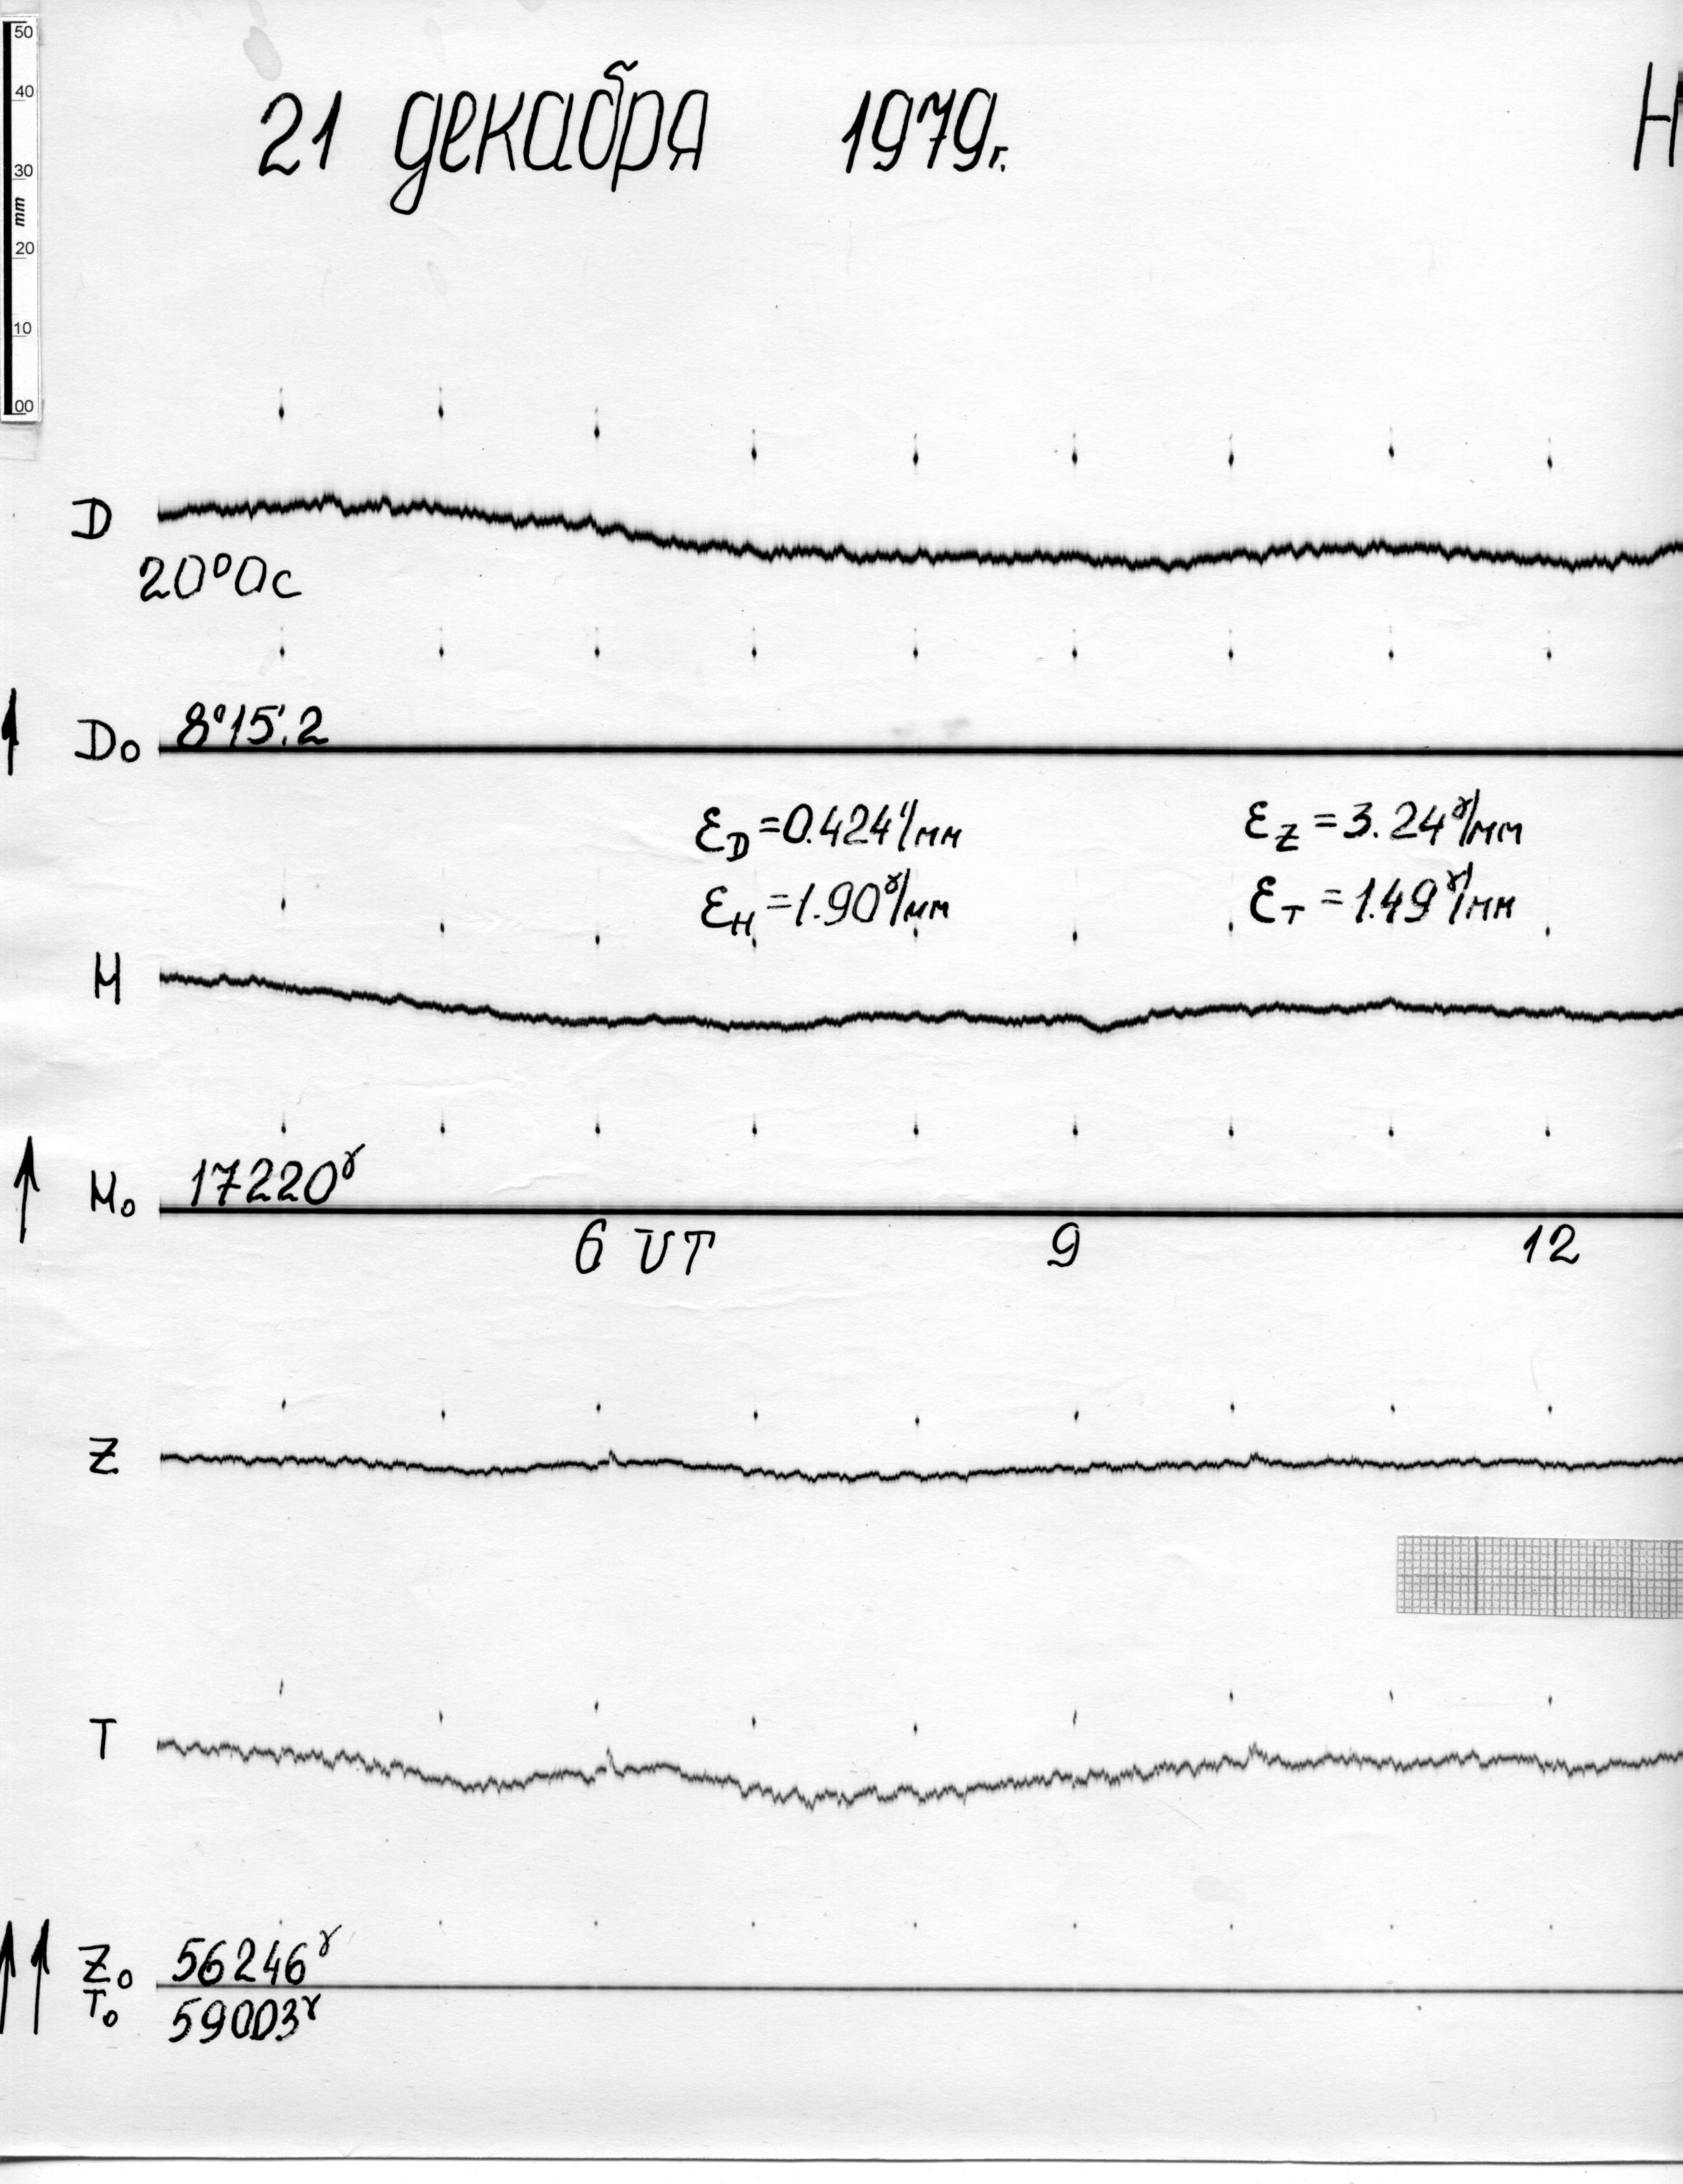 50
40
30
mm
20
10
00
21 декабря 1979г. Н
D
20°0с
D₀ 8°15.'2
ε_D = 0.424'/мм ε_Z = 3.24ᵞ/мм
ε_H = 1.90ᵞ/мм ε_T = 1.49ᵞ/мм
H
H₀ 17220ᵞ
6 UT 9 12
Z
T
Z₀ 56246ᵞ
T₀ 59003ᵞ